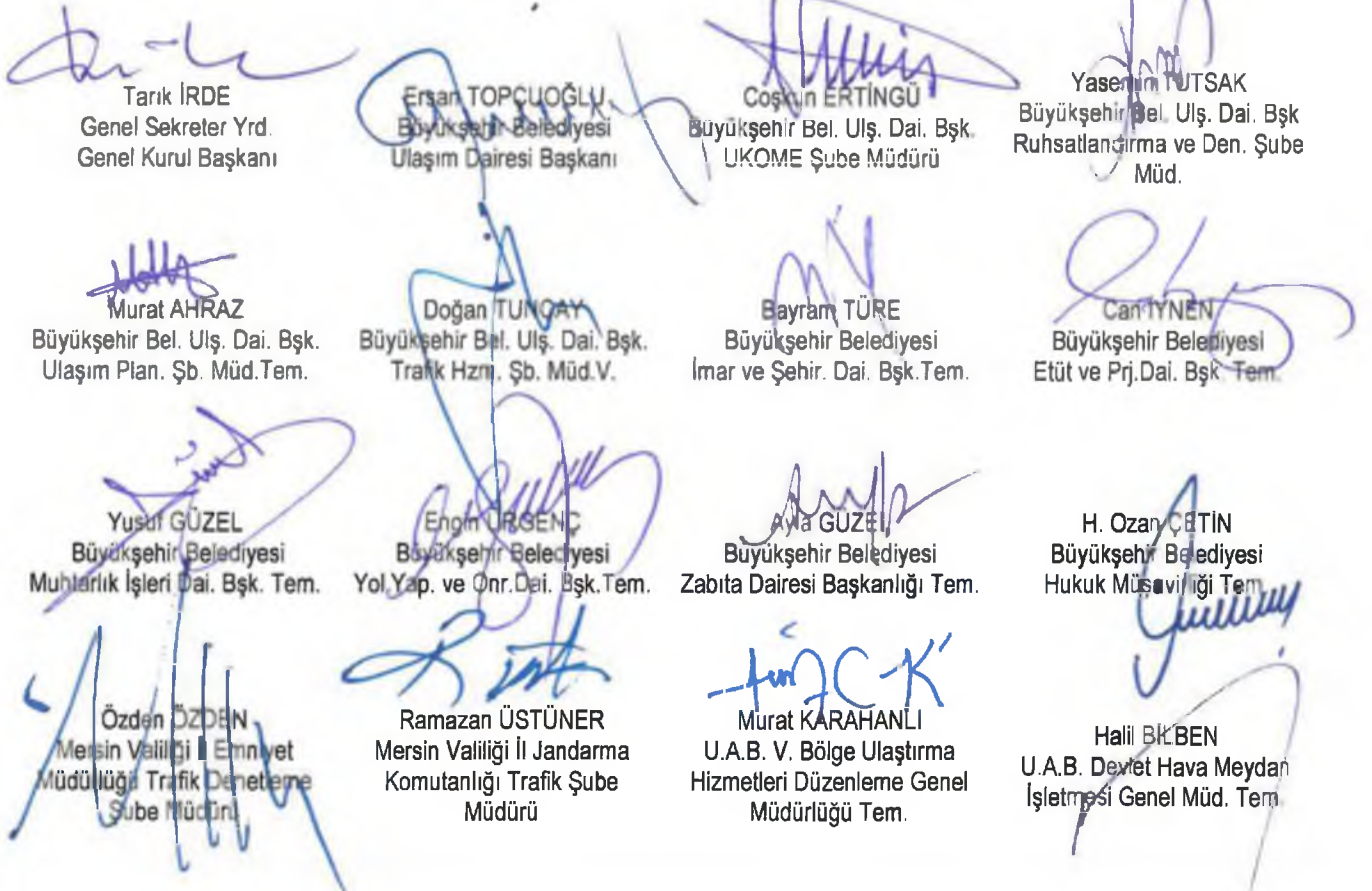 Tarık İRDE
Genel Sekreter Yrd.
Genel Kurul Başkanı
Ersan TOPÇUOĞLU
Büyükşehir Belediyesi
Ulaşım Dairesi Başkanı
Coşkun ERTİNGÜ
Büyükşehir Bel. Ulş. Dai. Bşk.
UKOME Şube Müdürü
Yasemin TUTSAK
Büyükşehir Bel. Ulş. Dai. Bşk
Ruhsatlandırma ve Den. Şube
Müd.
Murat AHRAZ
Büyükşehir Bel. Ulş. Dai. Bşk.
Ulaşım Plan. Şb. Müd.Tem.
Doğan TUNÇAY
Büyükşehir Bel. Ulş. Dai. Bşk.
Trafik Hzm. Şb. Müd.V.
Bayram TÜRE
Büyükşehir Belediyesi
İmar ve Şehir. Dai. Bşk.Tem.
Can İYNEN
Büyükşehir Belediyesi
Etüt ve Prj.Dai. Bşk. Tem.
Yusuf GÜZEL
Büyükşehir Belediyesi
Muhtarlık İşleri Dai. Bşk. Tem.
Engin ÜRGENÇ
Büyükşehir Belediyesi
Yol.Yap. ve Onr.Dai. Bşk.Tem.
Ayla GÜZEL
Büyükşehir Belediyesi
Zabıta Dairesi Başkanlığı Tem.
H. Ozan ÇETİN
Büyükşehir Belediyesi
Hukuk Müşavirliği Tem
Özden ÖZDEN
Mersin Valiliği İl Emniyet
Müdürlüğü Trafik Denetleme
Şube Müdürü
Ramazan ÜSTÜNER
Mersin Valiliği İl Jandarma
Komutanlığı Trafik Şube
Müdürü
Murat KARAHANLI
U.A.B. V. Bölge Ulaştırma
Hizmetleri Düzenleme Genel
Müdürlüğü Tem.
Halil BİLBEN
U.A.B. Devlet Hava Meydan
İşletmesi Genel Müd. Tem